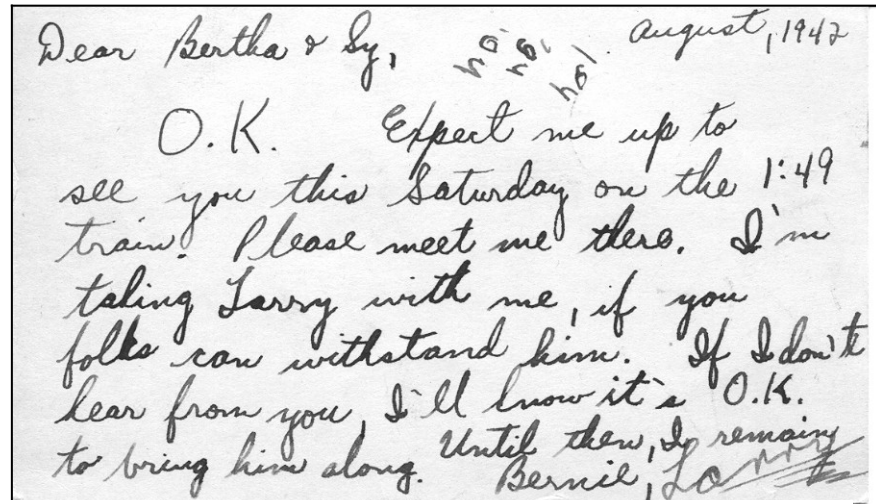 August, 1942
Dear Bertha & Sy,
ho!
ho!
ho!
O.K. Expect me up to
see you this Saturday on the 1:49
train. Please meet me there. I'm
taking Larry with me, if you
folks can withstand him. If I don't
hear from you, I'll know it's O.K.
to bring him along. Until then, I remain
Bernie, Larry